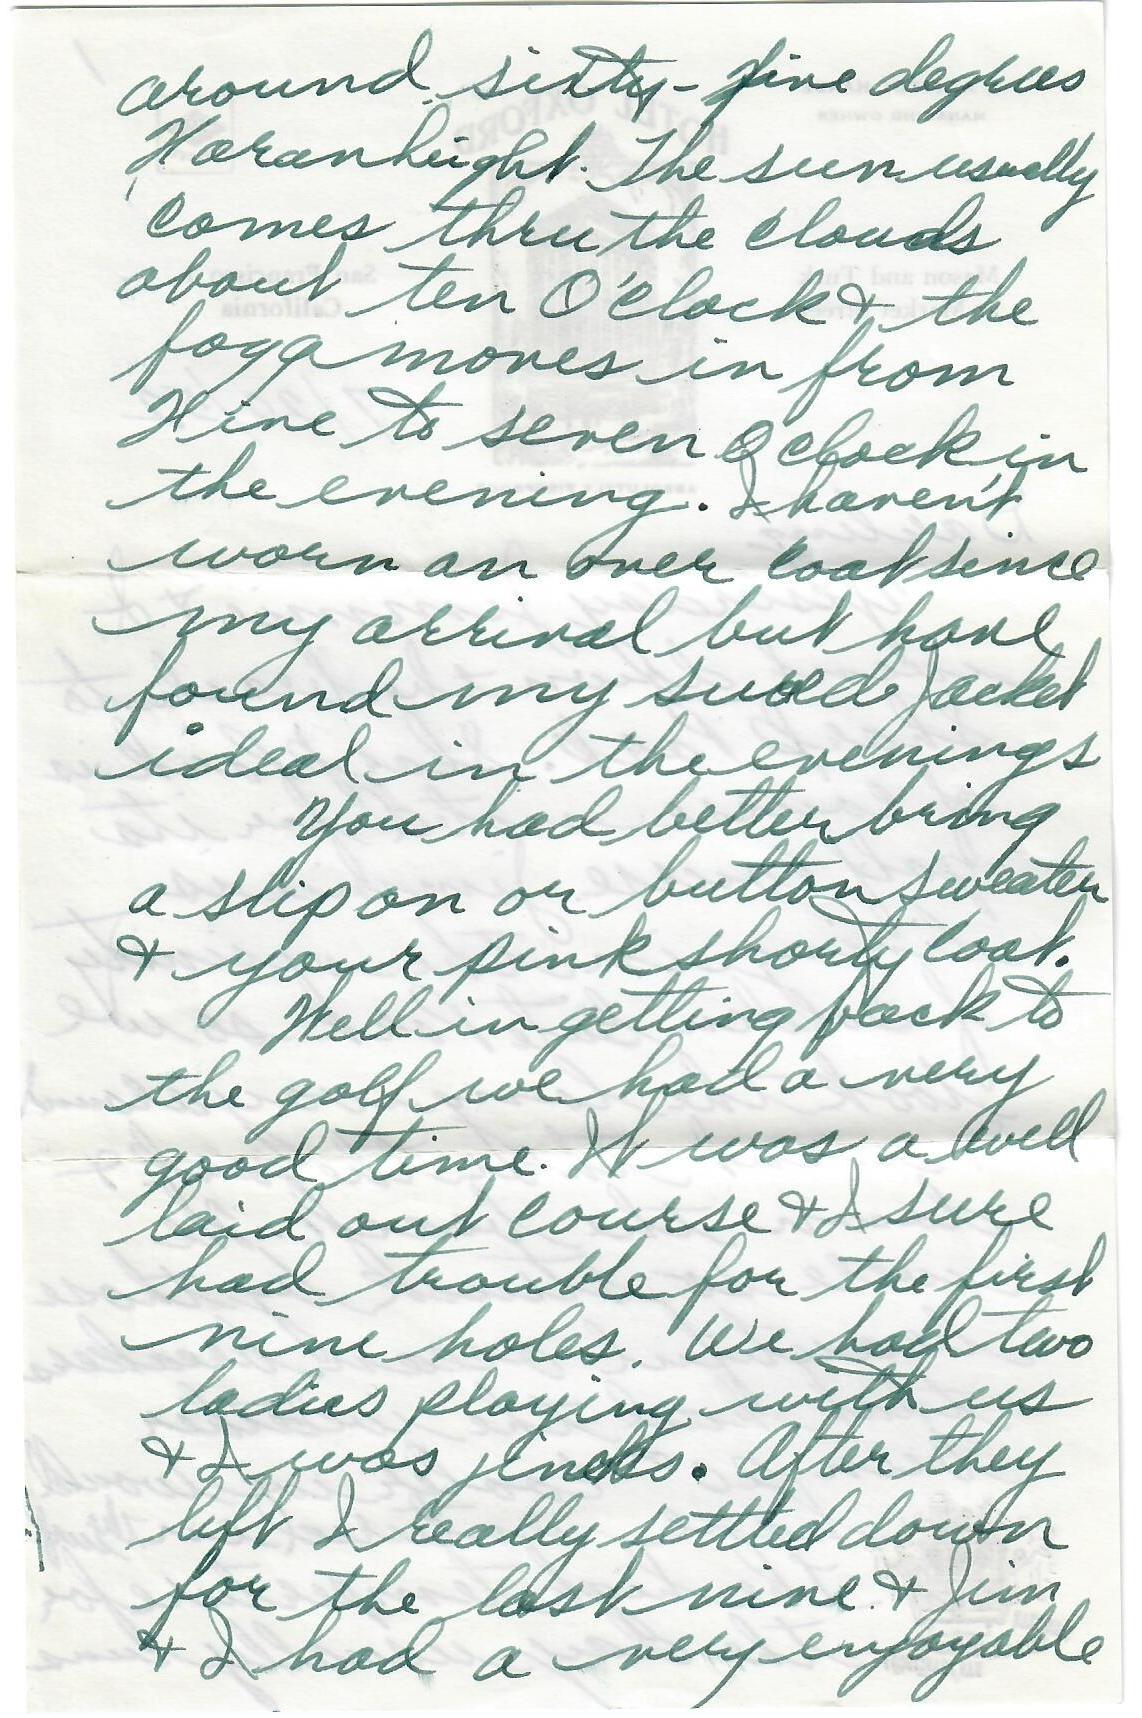 around sixty-five degrees
Faranheight. The sun usually
comes thru the clouds
about ten O'clock & the
fogg moves in from
Five to seven O'clock in
the evening. I haven't
worn an over coat since
my arrival but have
found my sued Jacket
ideal in the evenings
You had better bring
a slip on or button sweater
& your pink shorty coat.
Well in getting back to
the golf we had a very
good time. It was a well
laid out course & I sure
had trouble for the first
nine holes. We had two
ladies playing with us
& I was jincks. After they
left I really settled down
for the last nine & Jim
& I had a very enjoyable